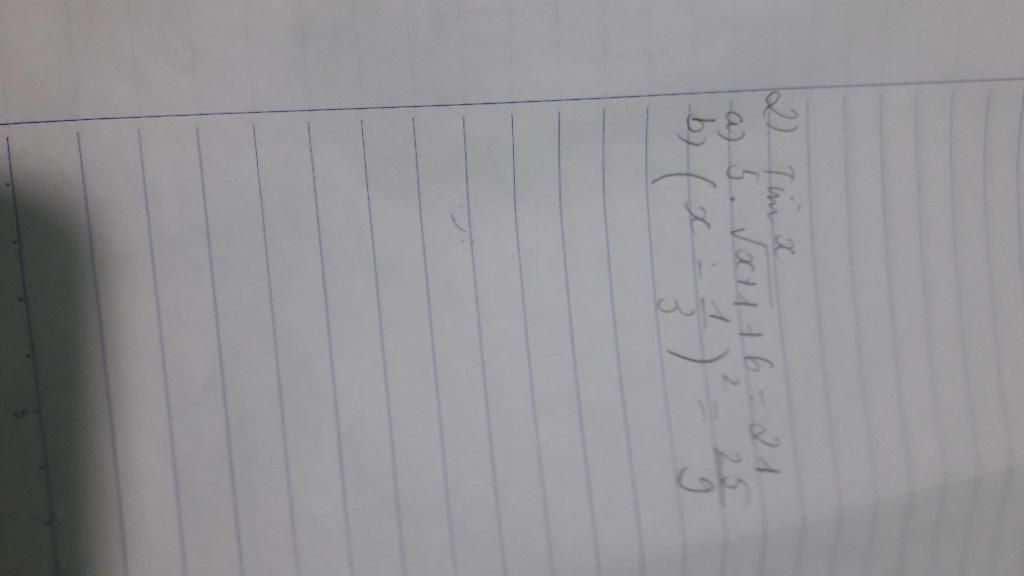 2) Tìm x
a) 5 . √x+1 + 6 = 21
b) ( x - 1/3 )² = 25/9